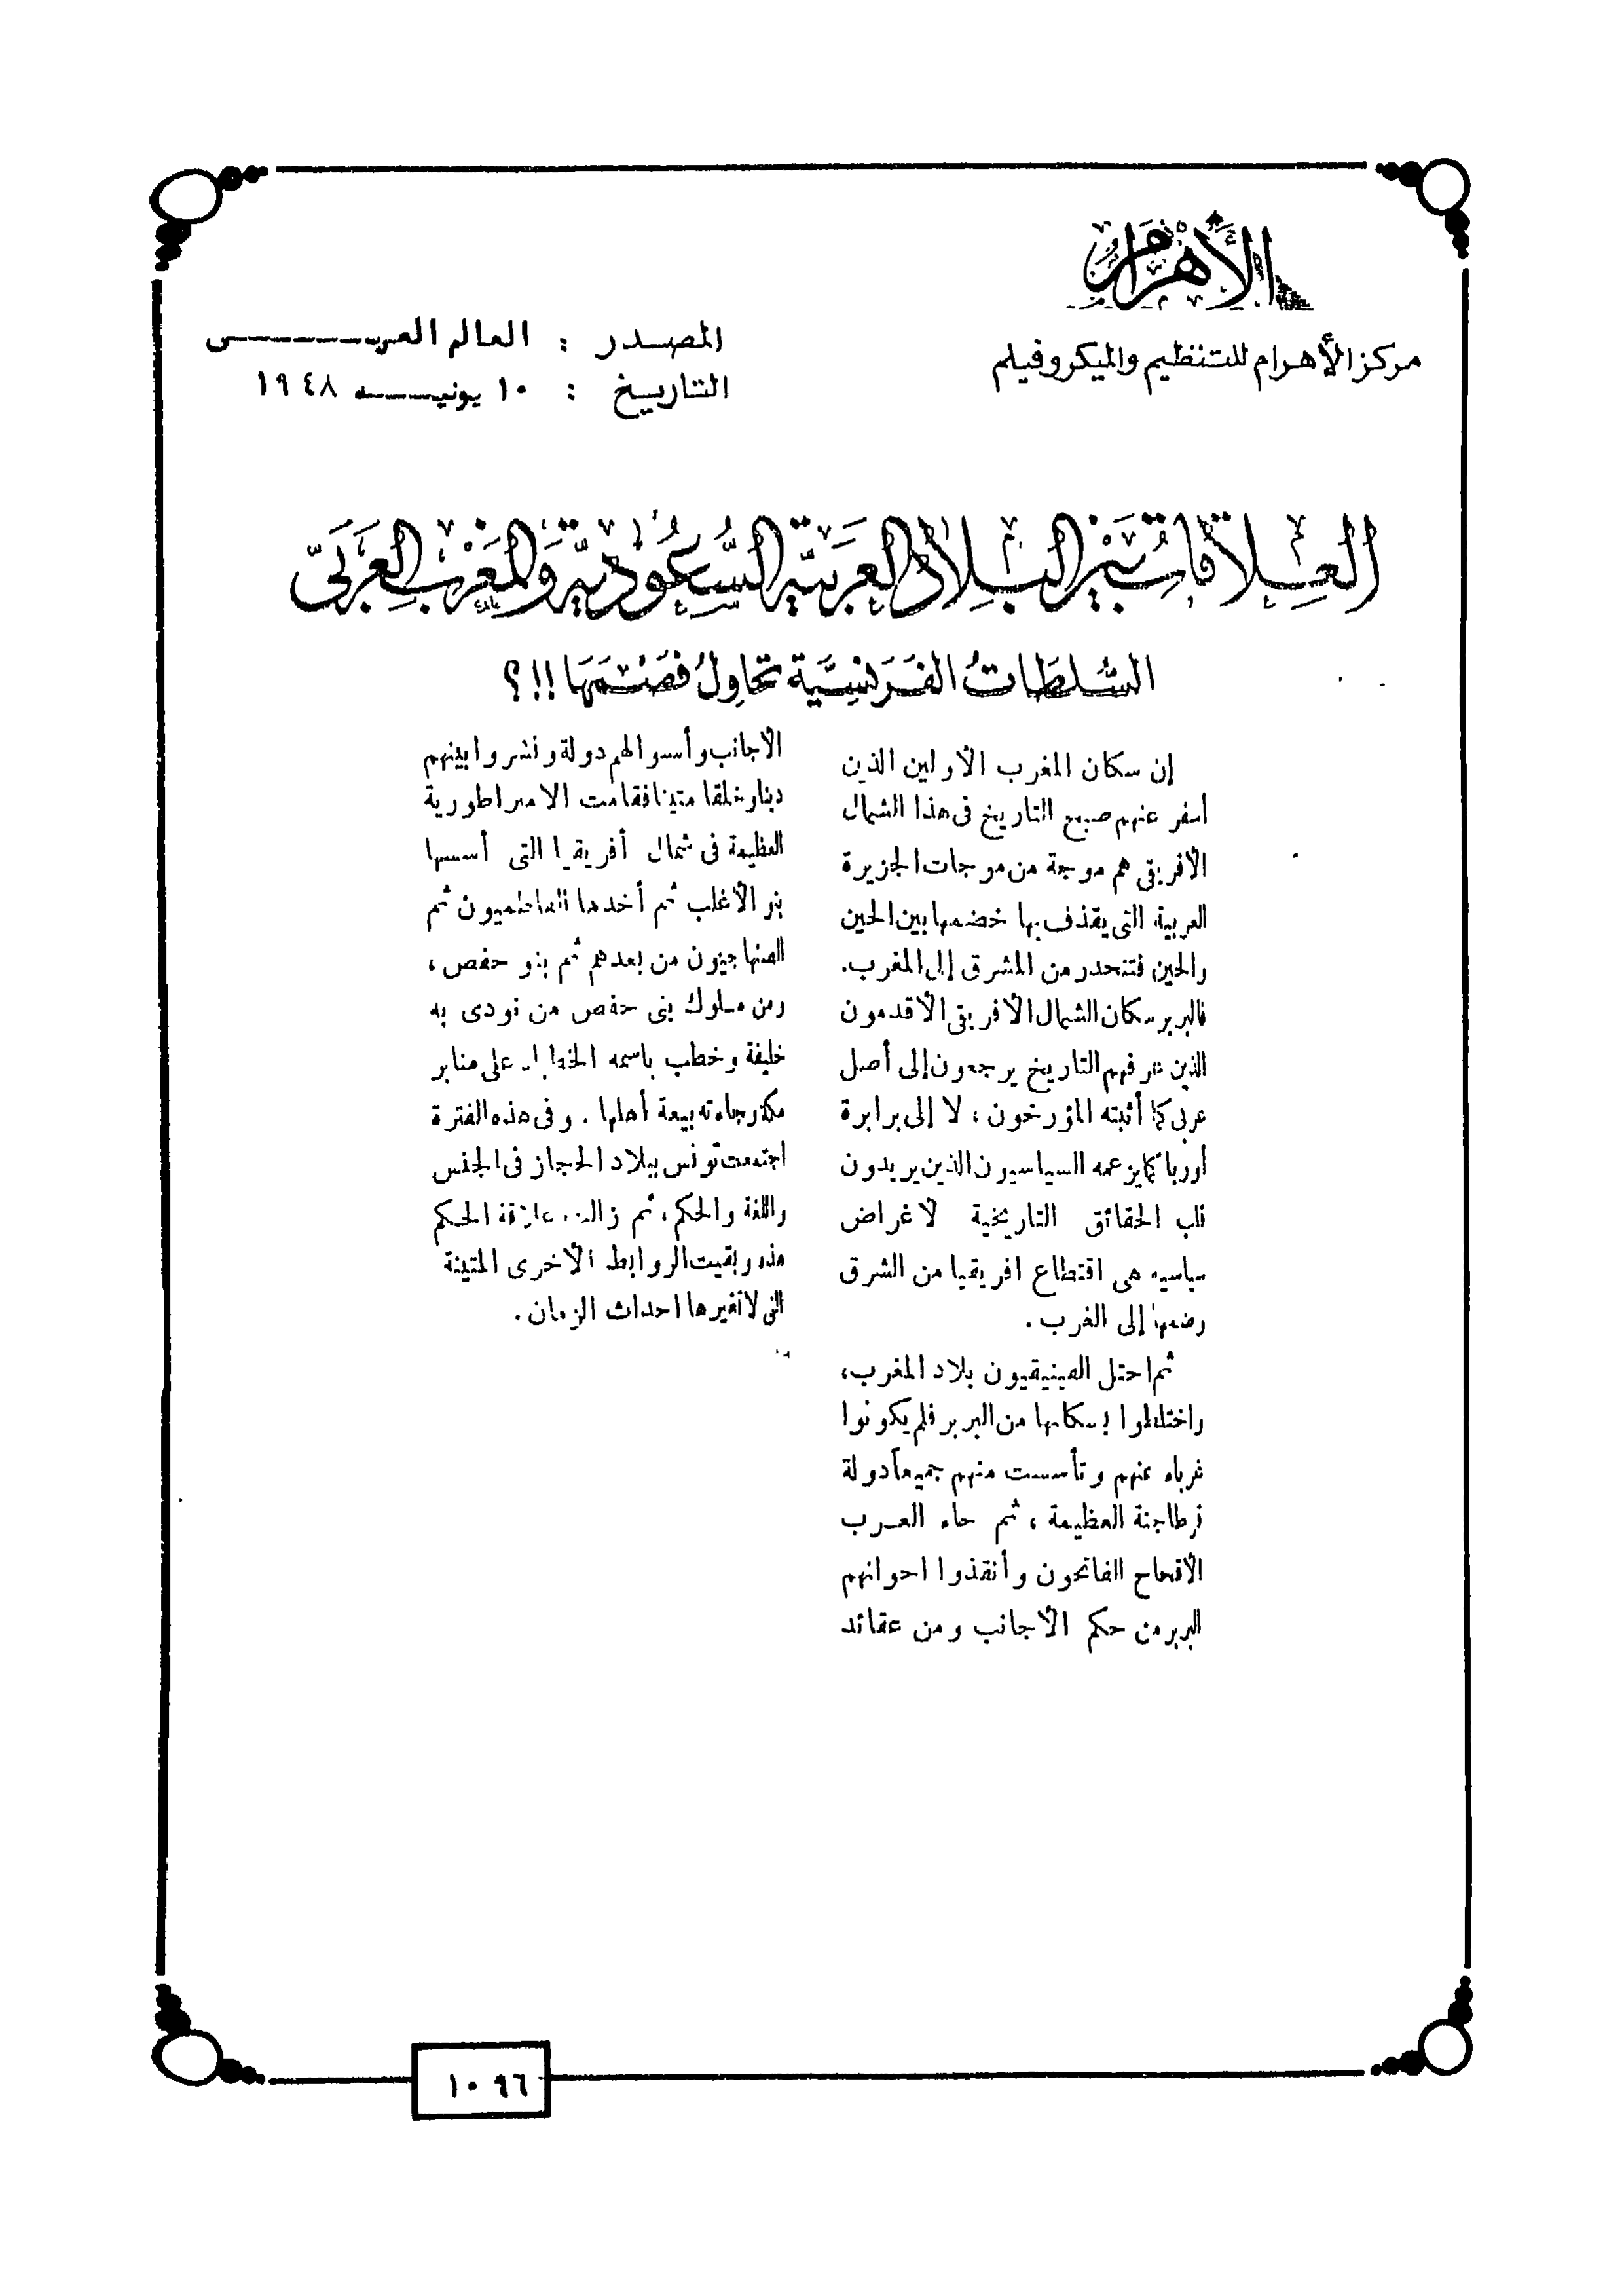 الأهرام
مركز الأهرام للتنظيم والميكروفيلم
المصدر : العالم العربى
التاريخ : ١٠ يونيه ١٩٤٨
العلاقات بين البلاد العربية السعودية والمغرب العربي
السلطات الفرنسية تحاول فصمها !!؟
إن سكان المغرب الأولين الذين
أسفر عنهم صبح التاريخ فى هذا الشمال
الأفريقى هم موجة من موجات الجزيرة
العربية التى يقذف بها خضمها بين الحين
والحين فتنحدر من المشرق إلى المغرب.
فالبربر سكان الشمال الأفريقى الأقدمون
الذين عرفهم التاريخ يرجعون إلى أصل
عربى كما أثبته المؤرخون ، لا إلى برابرة
أوربا كما يزعمه السياسيون الذين يريدون
قلب الحقائق التاريخية لاغراض
سياسيه هى اقتطاع افريقيا من الشرق
وضمها إلى الغرب .
ثم احتل الفينيقيون بلاد المغرب،
واختلطوا بسكانها من البربر فلم يكونوا
غرباء عنهم وتأسست منهم جميعاً دولة
قرطاجنة العظيمة ، ثم جاء العرب
الأقحاح الفاتحون وأنقذوا اخوانهم
البربر من حكم الأجانب ومن عقائد
الأجانب وأسسوا لهم دولة ونشروا بينهم
دينا وخلقا متينا فقامت الامبراطورية
العظيمة فى شمال أفريقيا التى أسسها
بنو الأغلب ثم أخدها الفاطميون ثم
الصنهاجيون من بعدهم ثم بنو حفص ،
ومن ملوك بنى حفص من نودى به
خليفة وخطب باسمه الخطباء على منابر
مكة وجاءته بيعة أهلها . وفى هذه الفترة
اجتمعت تونس ببلاد الحجاز فى الجنس
واللغة والحكم ، ثم زالت علاقة الحكم
هذه وبقيت الروابط الأخرى المتينة
التى لا تغيرها احداث الزمان .
١٠٩٦